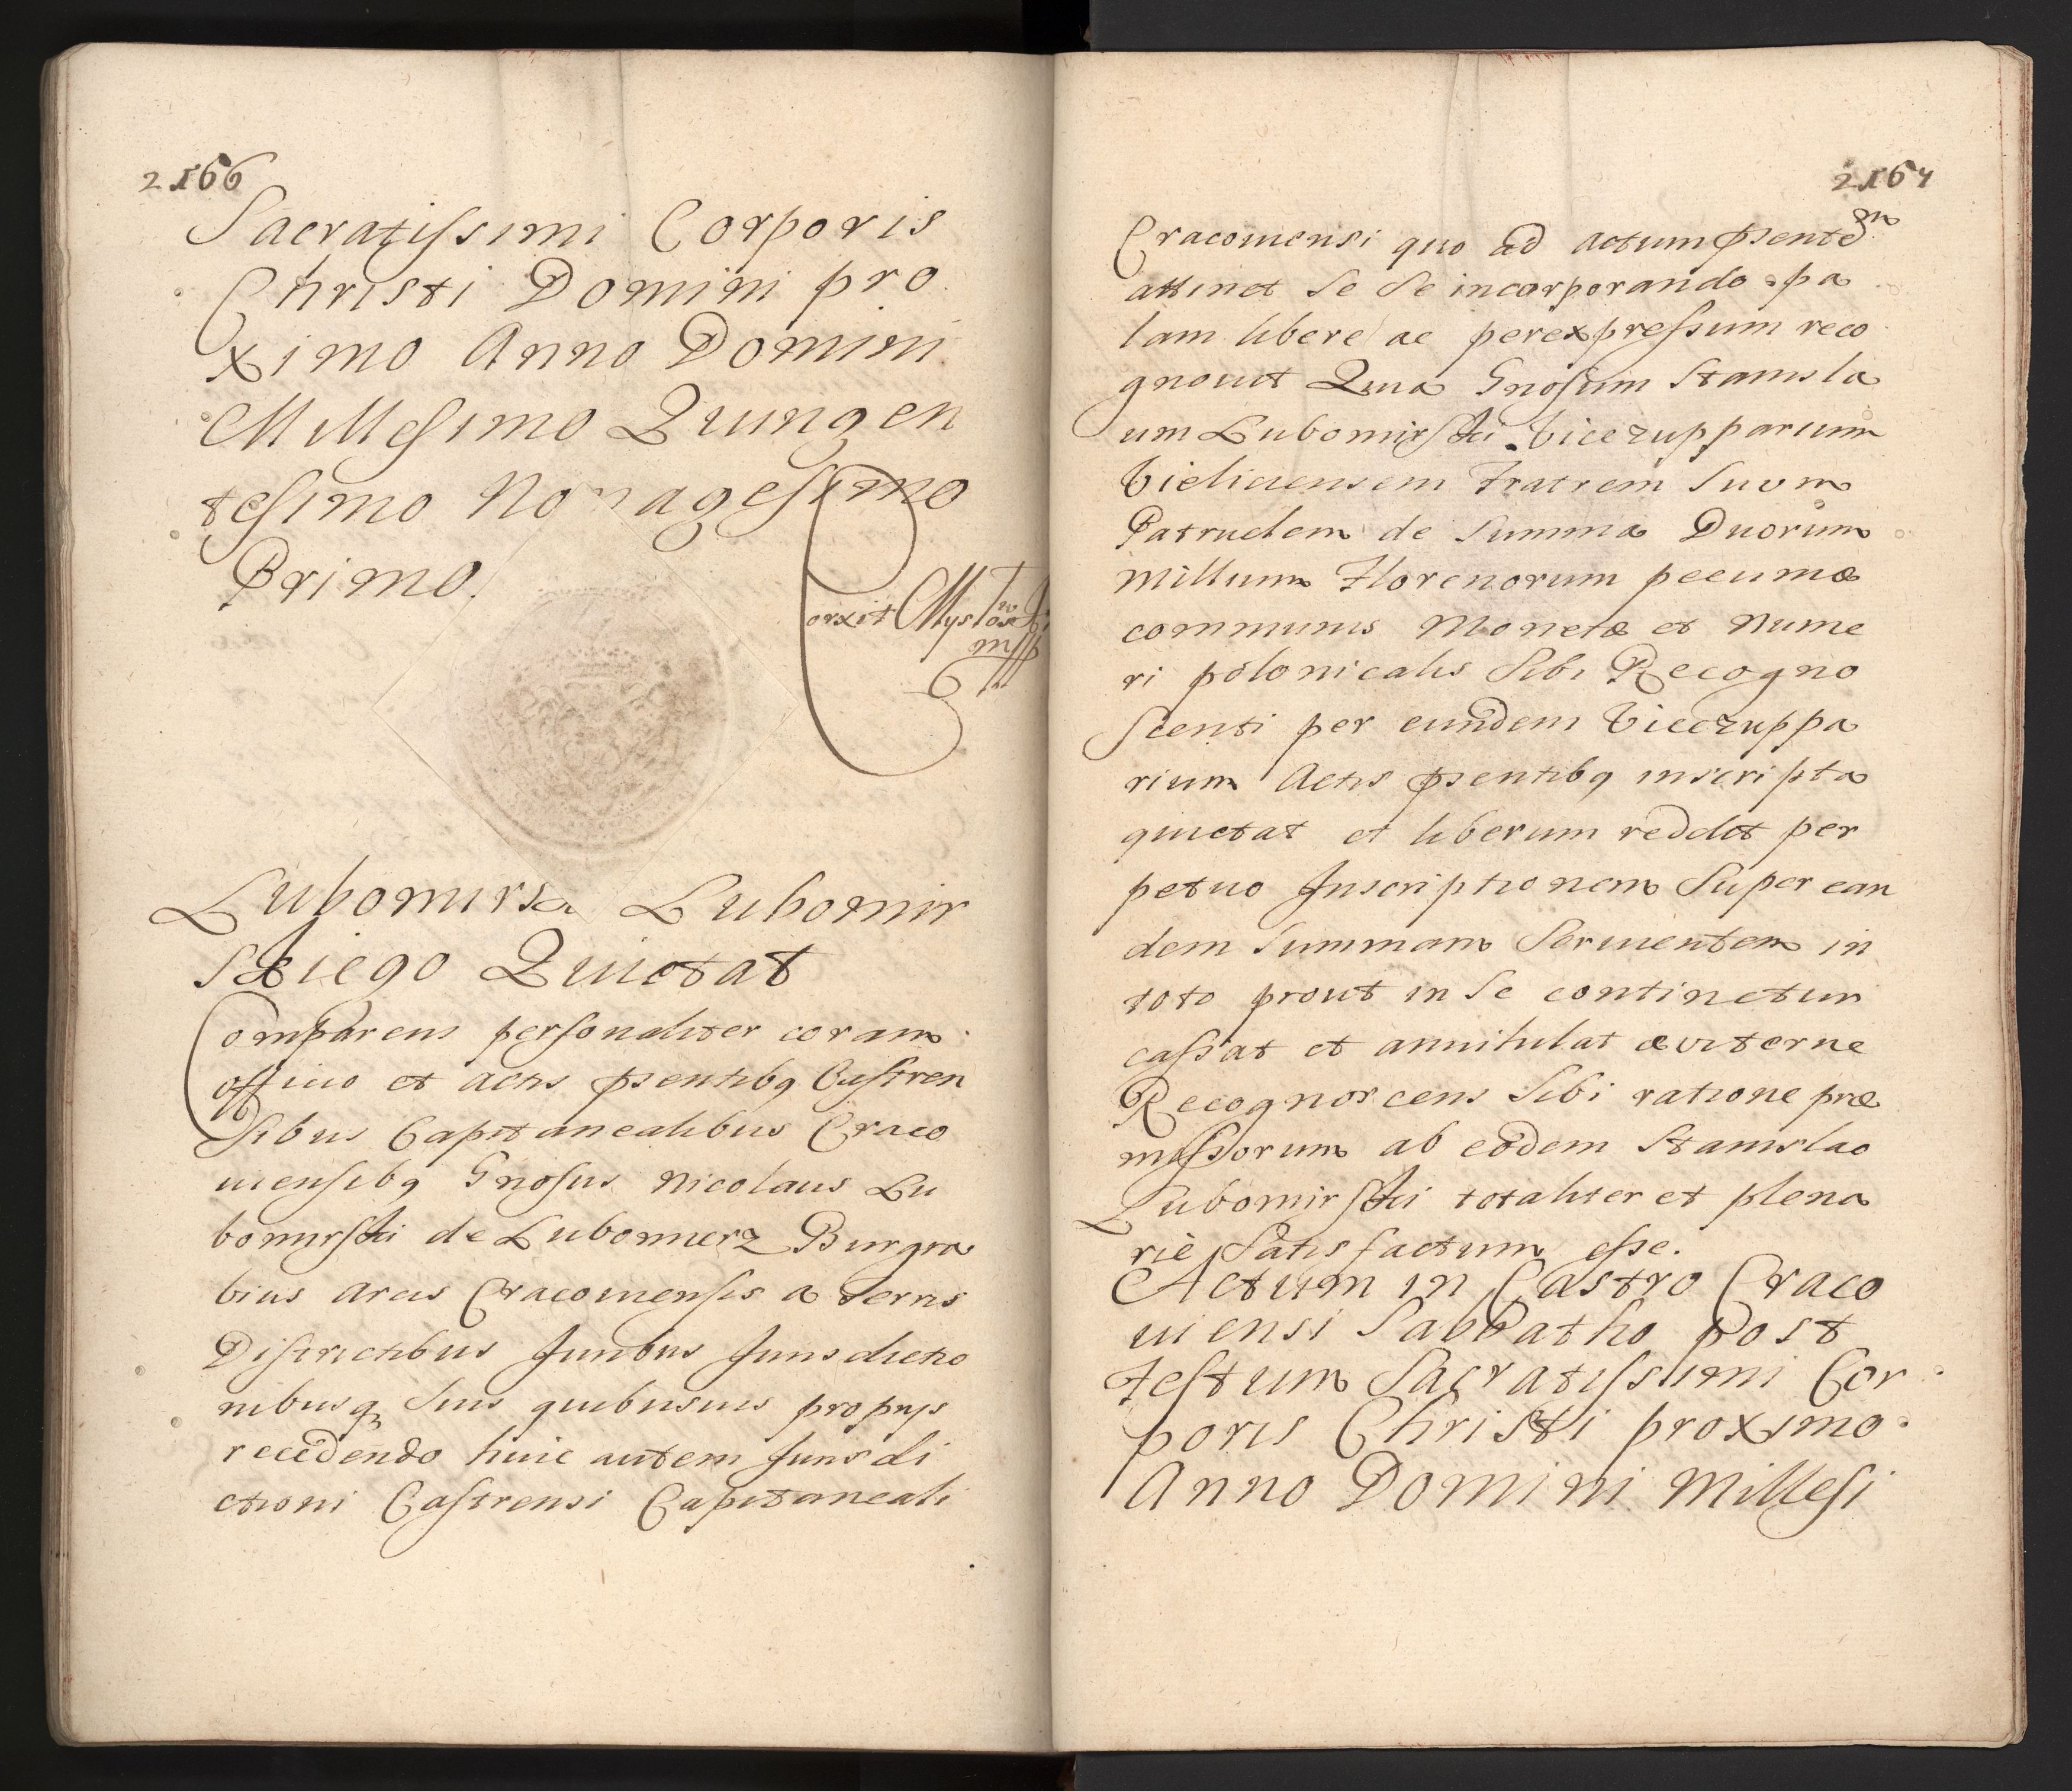 2166
Sacratissimi Corporis
Christi Domini pro
ximo Anno Domini
Millesimo Quingen
tesimo Nonagesimo
Primo.
orxit
mpp
Lubomirski Lubomir
skiego Quietat
Comparens personaliter coram
officio et actis psentibq Castren
sibus Capitanealibus Craco
uiensibq Gnosus Nicolaus Lu
bomirski de Lubomierz Burgra
bius Arcis Cracouiensis a terris
Districtibus Iuribus Iurisdictio
nibusq suis quibusuis proprys
recedendo huic autem Iurisdi
ctioni Castrensi Capitaneali
2167
Cracouiensi quo ad actum psentem
attinet se se incorporando pa
lam libere ac per expressum reco
gnouit Quia Gnosum Stanisla
um Lubomirski Vicezupparium
Vieliciensem Fratrem suum
Patruelem de summa Duorum
Millium Florenorum pecuniæ
communis Monetæ et Nume
ri polonicalis sibi Recogno
scenti per eundem Vicezuppa
rium Actis psentibq inscripta
quietat et liberum reddit per
petuo Inscriptionem super ean
dem summam seruientem in
toto prout in se continetur
cassat et annihilat æuiterne
Recognoscens sibi ratione præ
missorum ab eodem Stanislao
Lubomirski totaliter et plena
rie satisfactum esse.
Actum in Castro Craco
uiensi Sabbatho Post
Festum Sacratissimi Cor
poris Christi proximo
Anno Domini Millesi